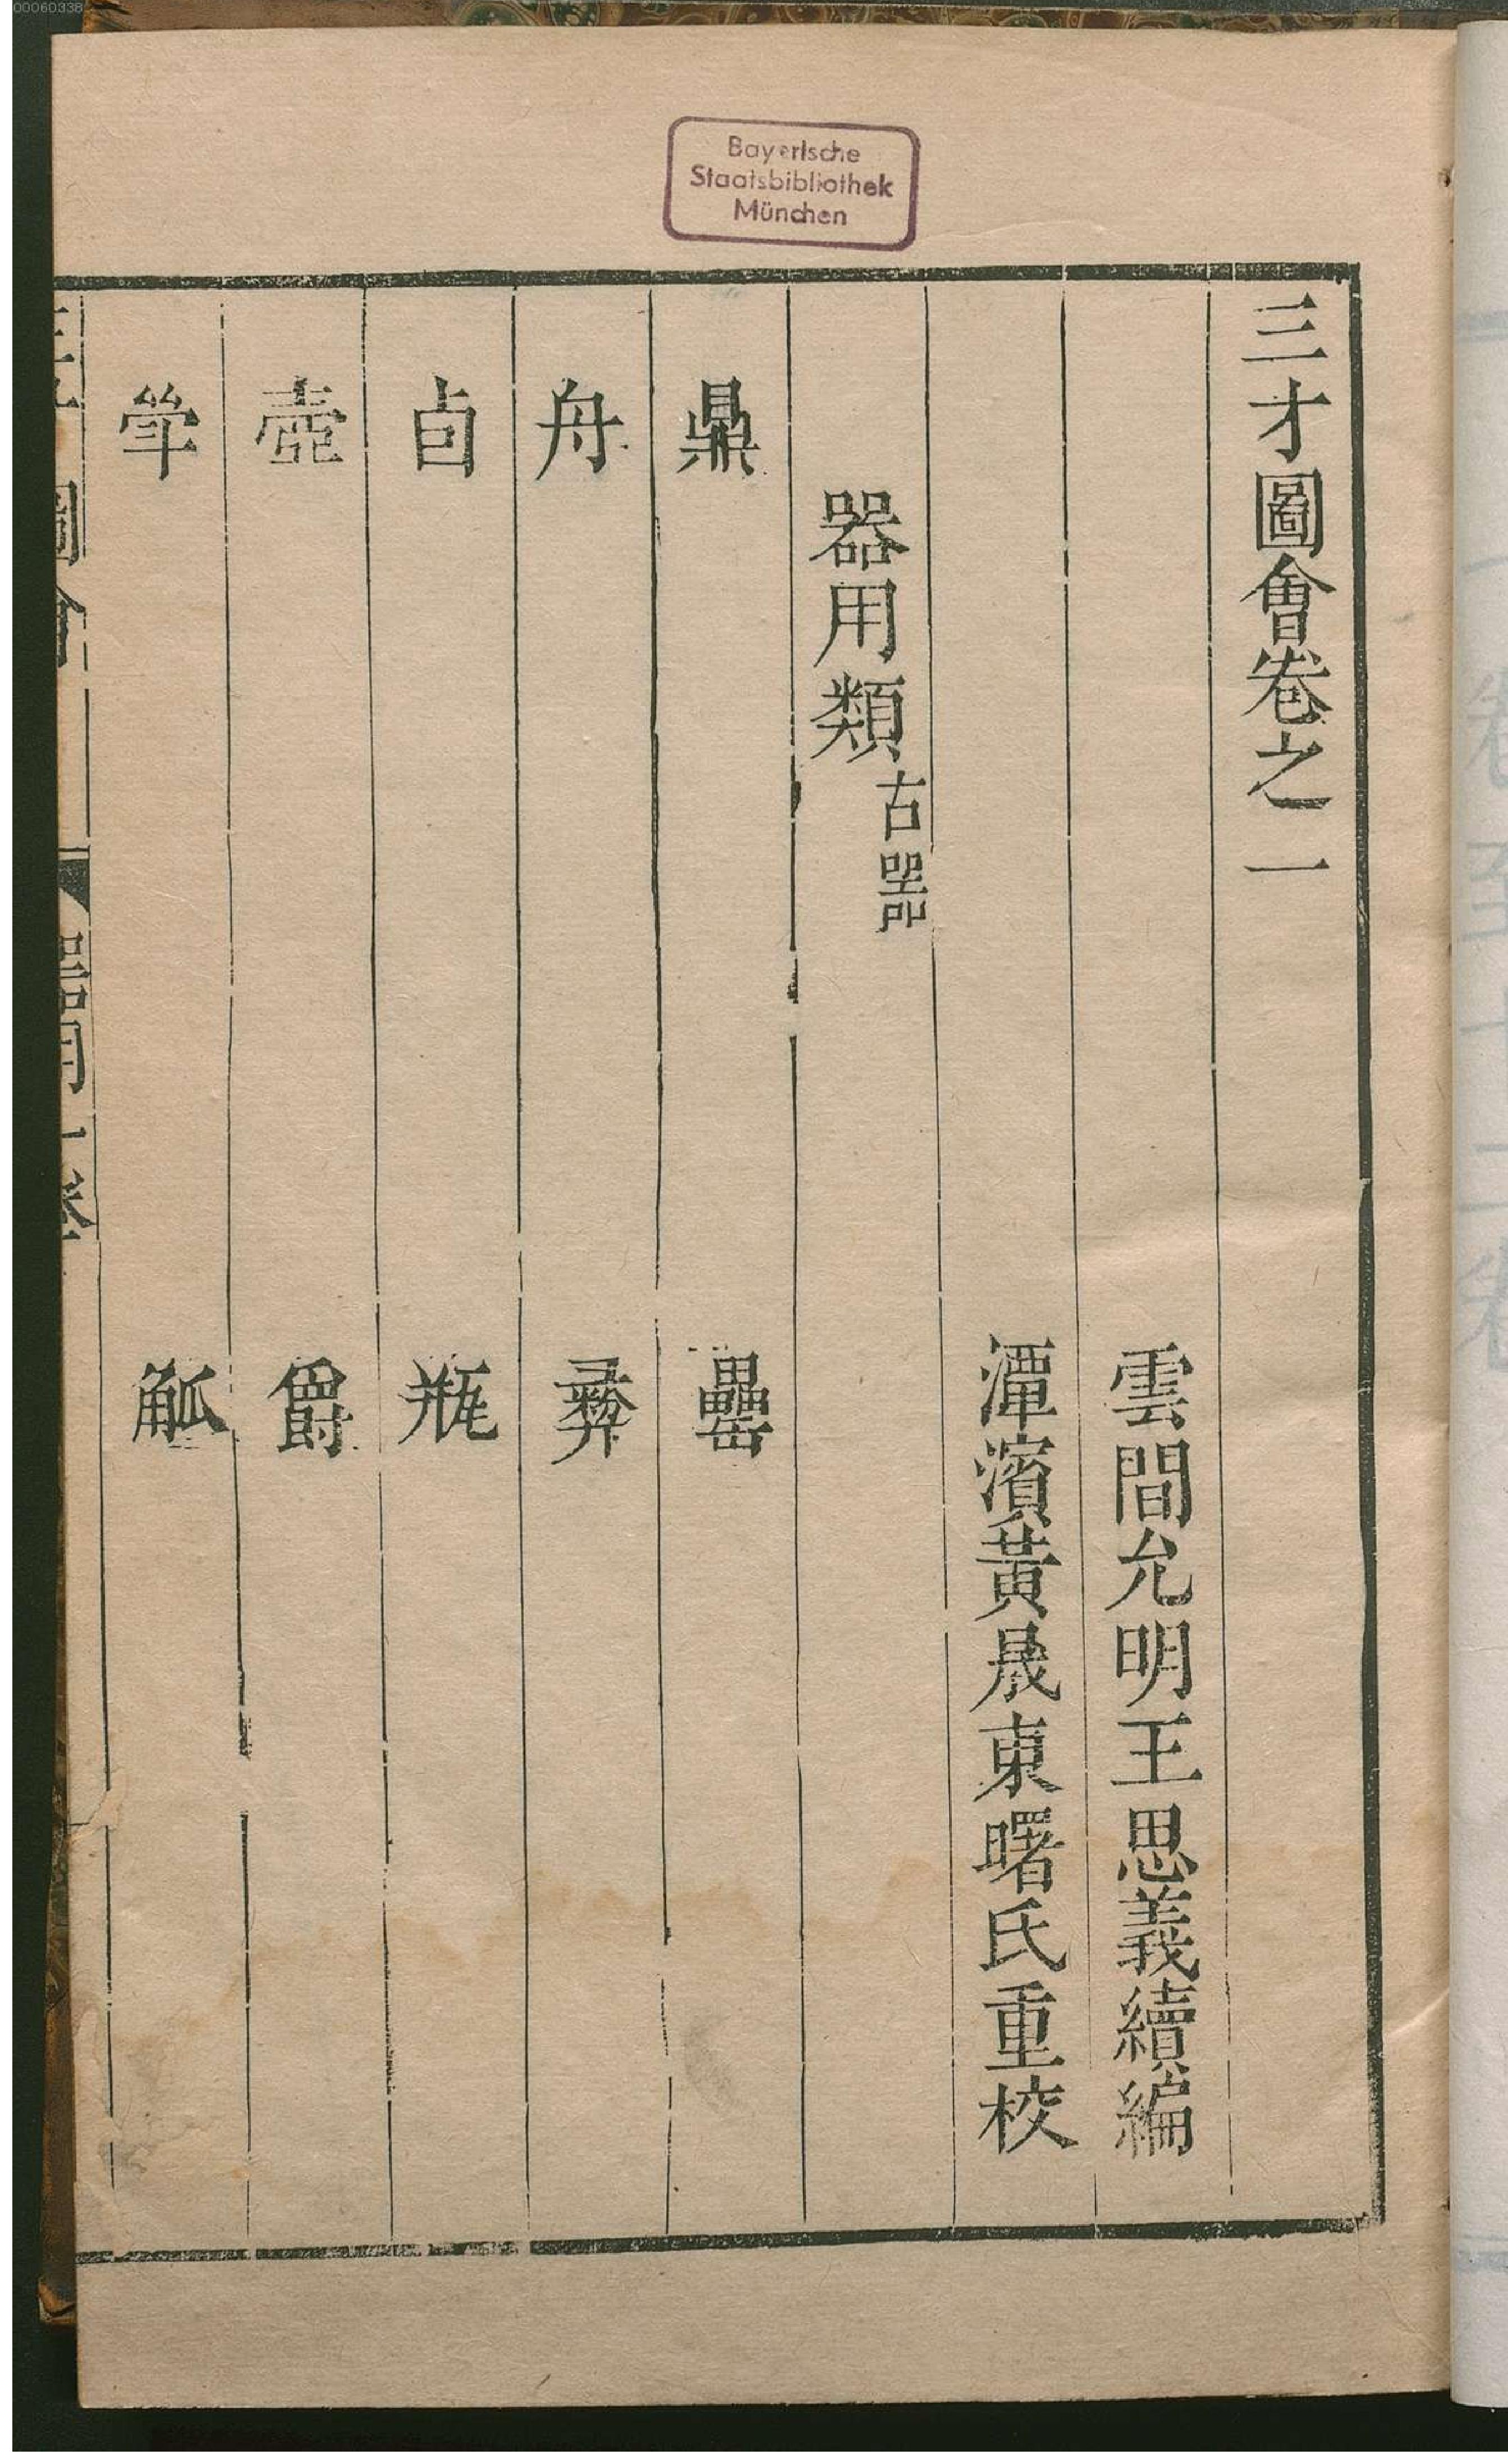 00060338
Bayerische
Staatsbibliothek
München
三才圖會卷之一
雲間允明王思義續編
潭濱黃晟東曙氏重校
器用類古器
鼎
罍
舟
彝
卣
瓶
壺
爵
斝
觚
三才圖會
器用一卷